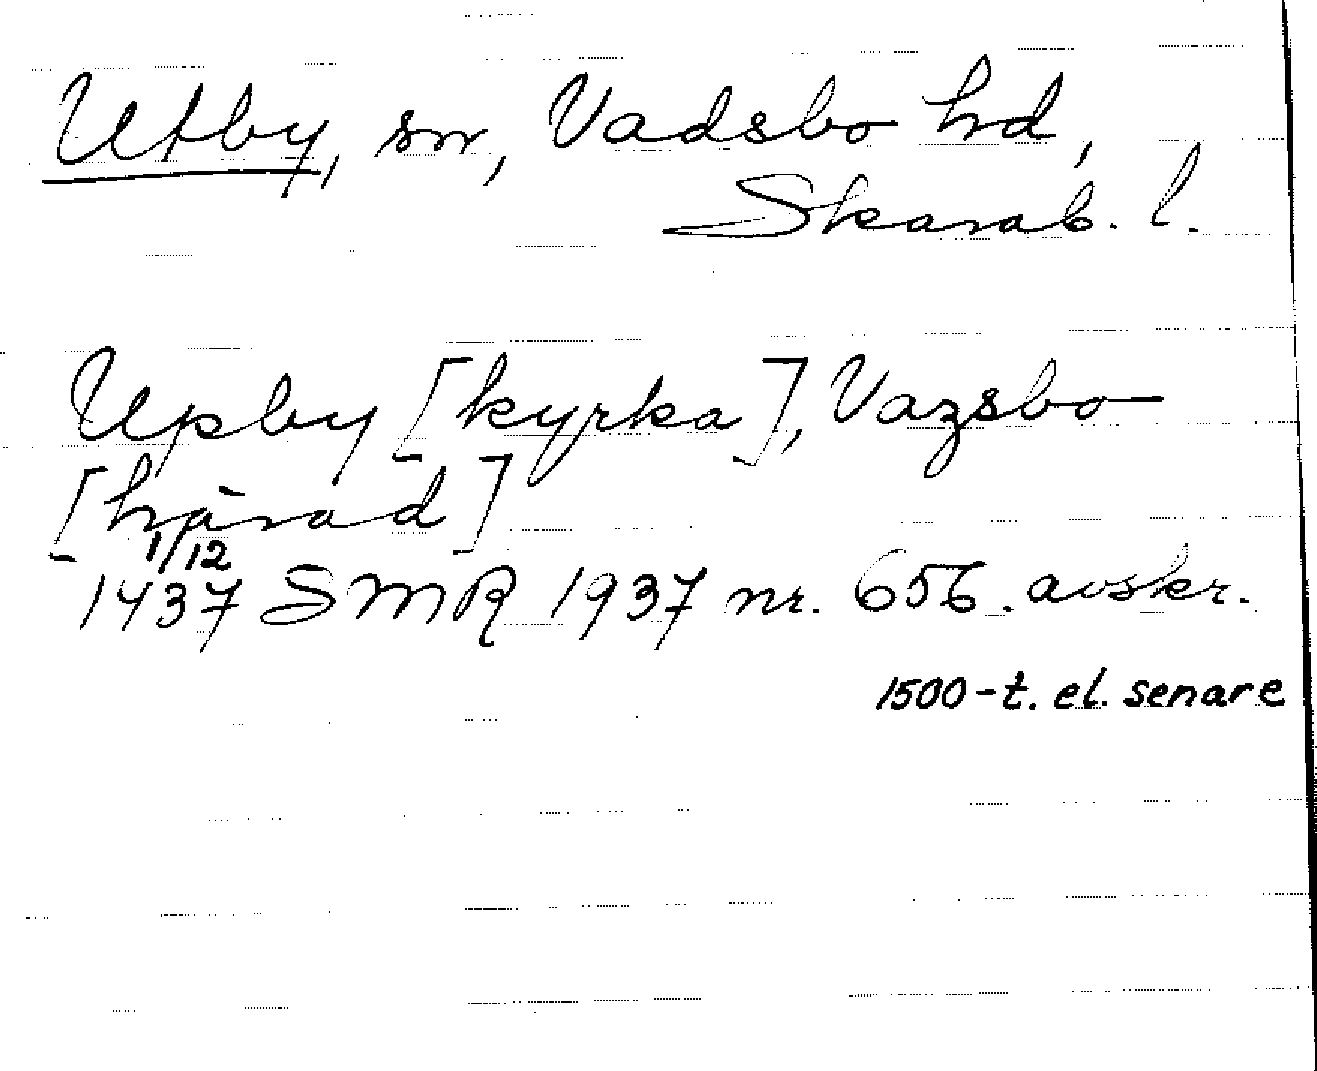 Utby, sn, Vadsbo hd,
Skarab. l.
Upby [kyrka], Vazsbo
[härad]
1/12
1437 SMR 1937 nr. 656. avskr.
1500-t. el. senare